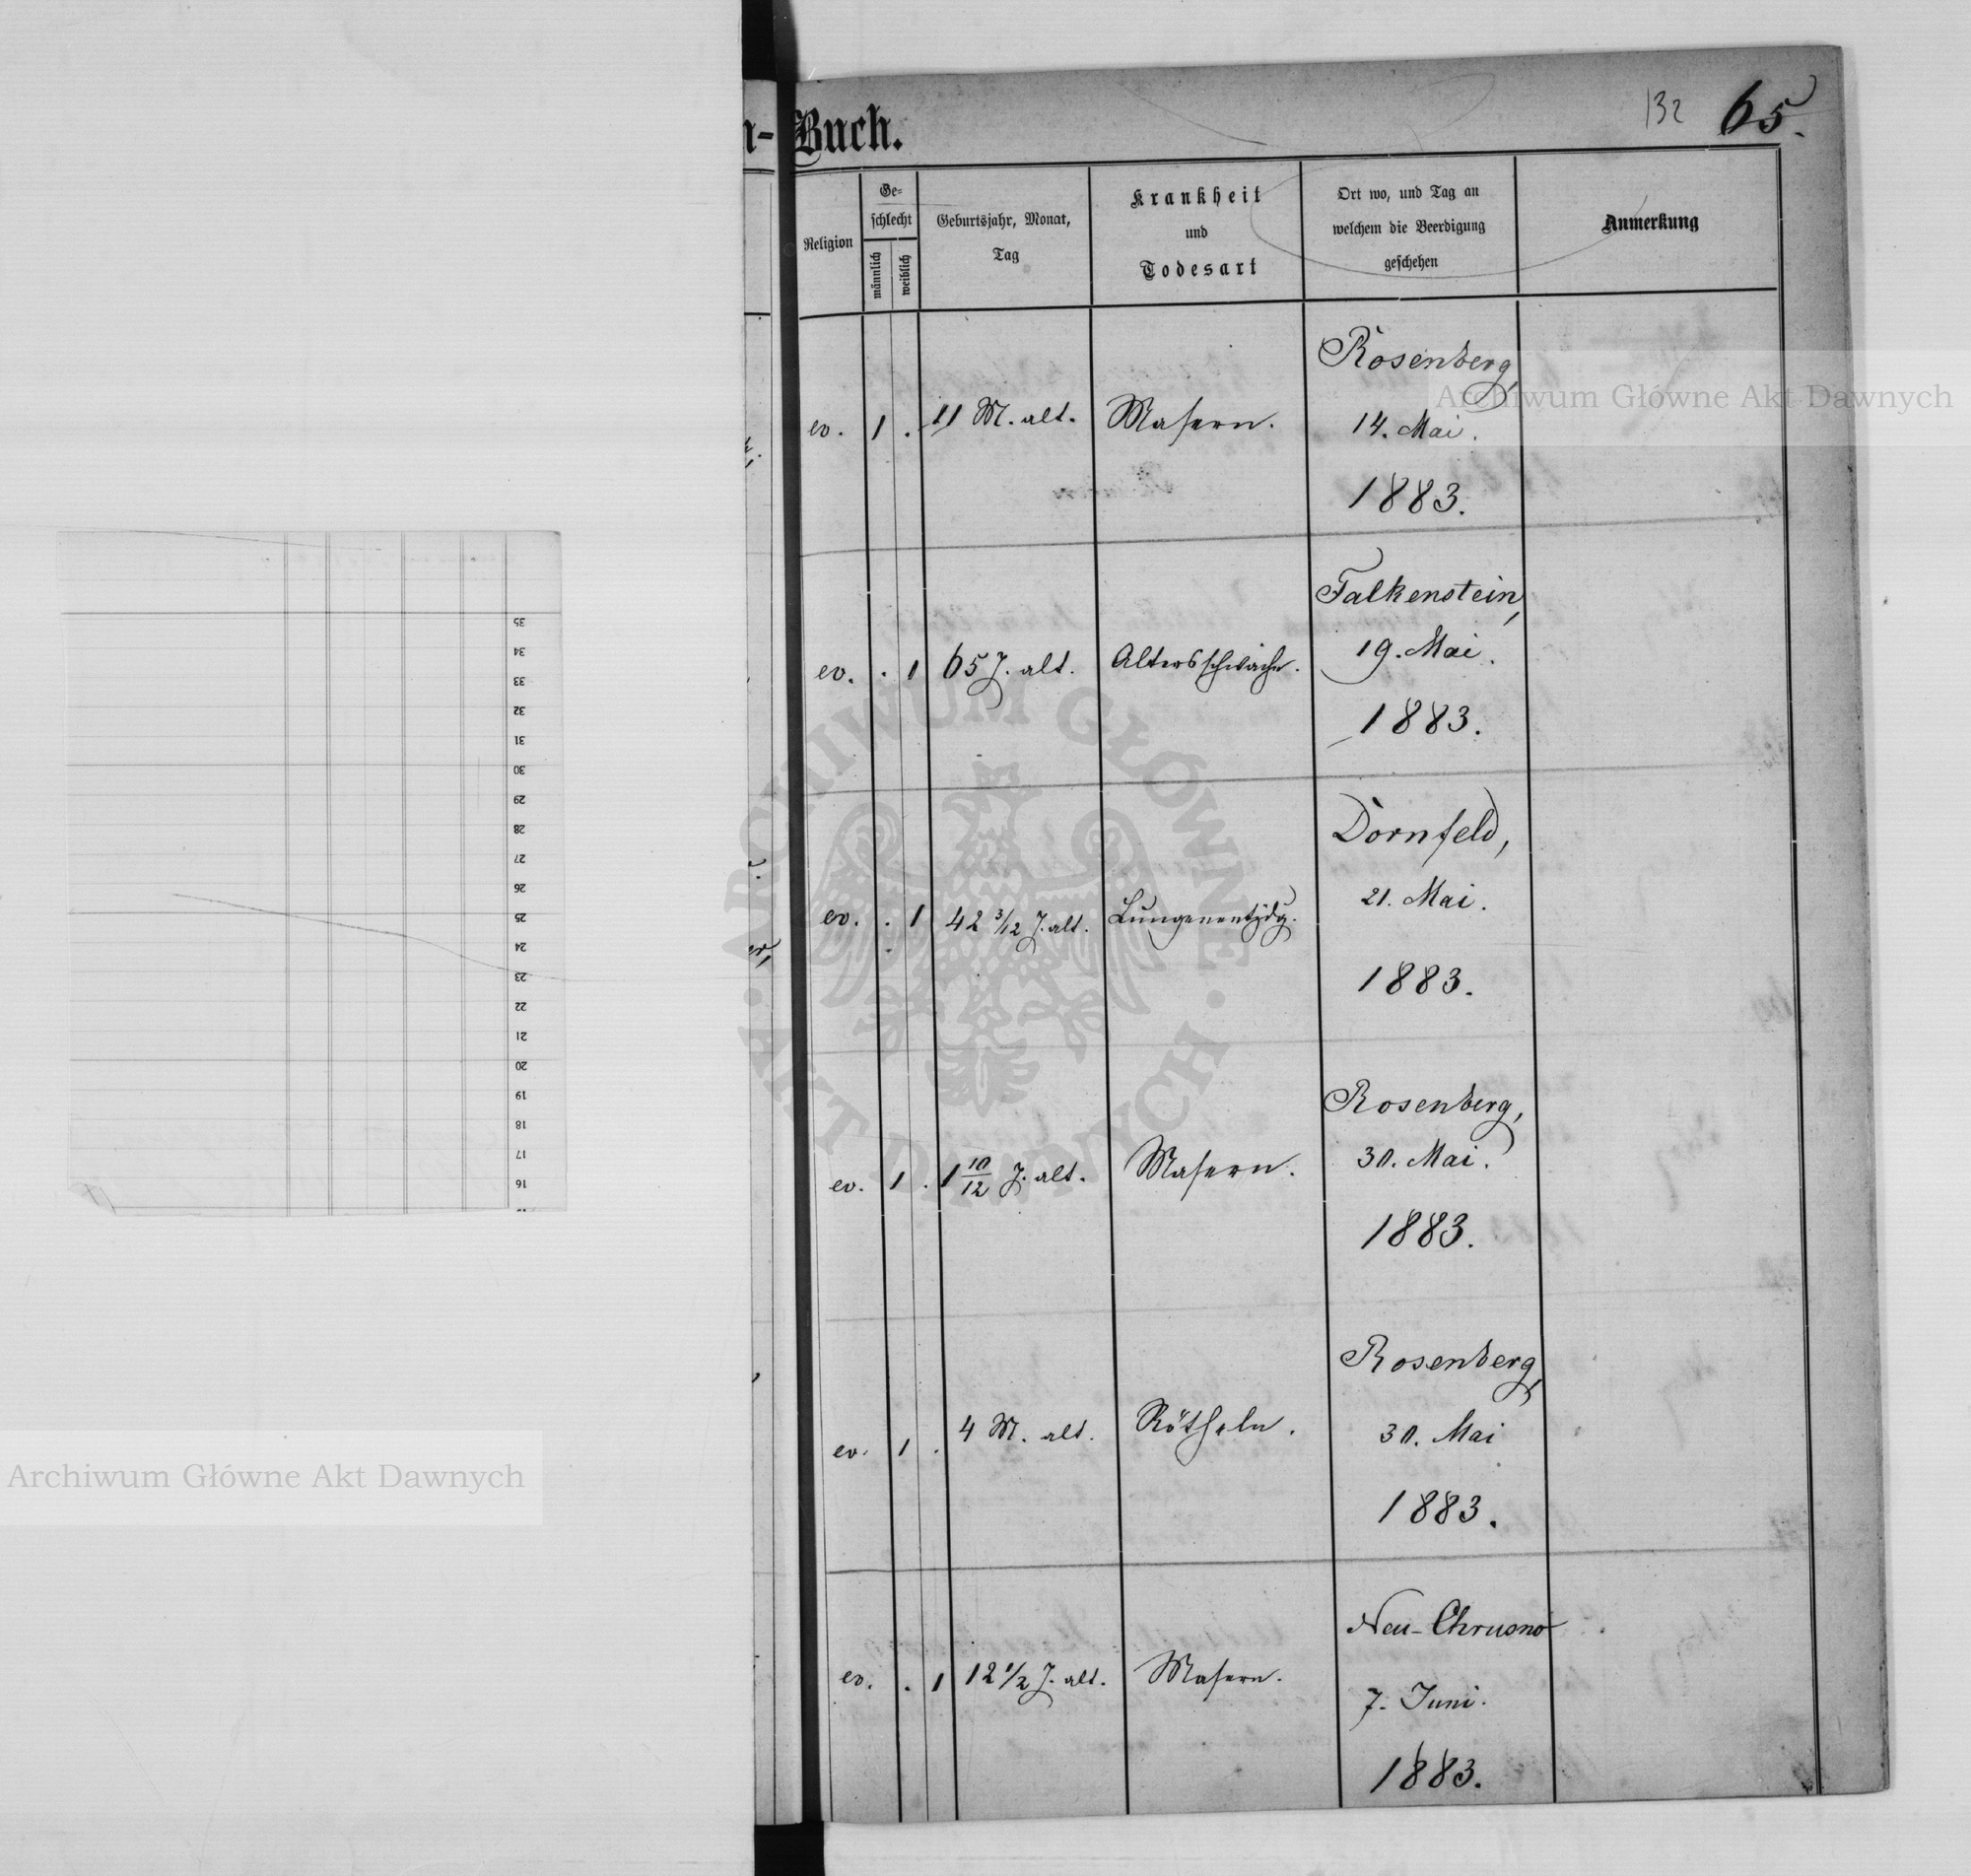 n-Buch.
132 65.
Religion
Ge-
schlecht
männlich
weiblich
Geburtsjahr, Monat,
Tag
Krankheit
und
Todesart
Ort wo, und Tag an
welchem die Beerdigung
geschehen
Anmerkung
Rosenberg,
ev. 1 . 11 M. alt. Masern. 14. Mai.
1883.
Falkenstein,
ev. . 1 65 J. alt. Altersschwäche. 19. Mai.
1883.
Dornfeld,
ev. . 1 42 3/12 J. alt. Lungenentzdg. 21. Mai.
1883.
Rosenberg,
ev. 1 . 1 10/12 J. alt. Masern. 30. Mai.
1883.
Rosenberg,
ev. 1 . 4 M. alt. Rötheln. 30. Mai
1883.
Neu-Chrusno
ev. . 1 12 1/2 J. alt. Masern. 7. Juni.
1883.
35
34
33
32
31
30
29
28
27
26
25
24
23
22
21
20
19
18
17
16
Archiwum Główne Akt Dawnych
Archiwum Główne Akt Dawnych
ARCHIWUM GŁÓWNE · AKT DAWNYCH ·